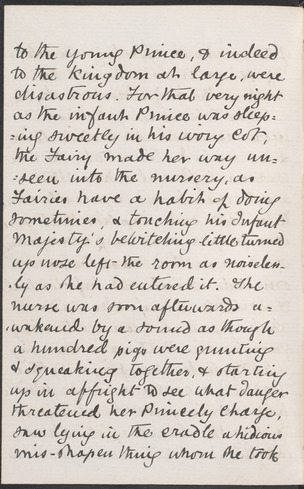 to the young Prince, & indeed
to the kingdom at large, were
disastrous. For that very night
as the infant Prince was sleep=
=ing sweetly in his ivory Cot,
the Fairy made her way un=
=seen into the nursery, as
Fairies have a habit of doing
sometimes, & touching his Infant
Majesty's bewitching little turned
up nose left the room as noiseless=
=ly as she had entered it. The
nurse was soon afterwards a=
wakened by a sound as though
a hundred pigs were grunting
& squeaking together, & starting
up in affright to see what danger
threatened her Princely Charge,
saw lying in the cradle a hidious
mis-shapen thing whom she took